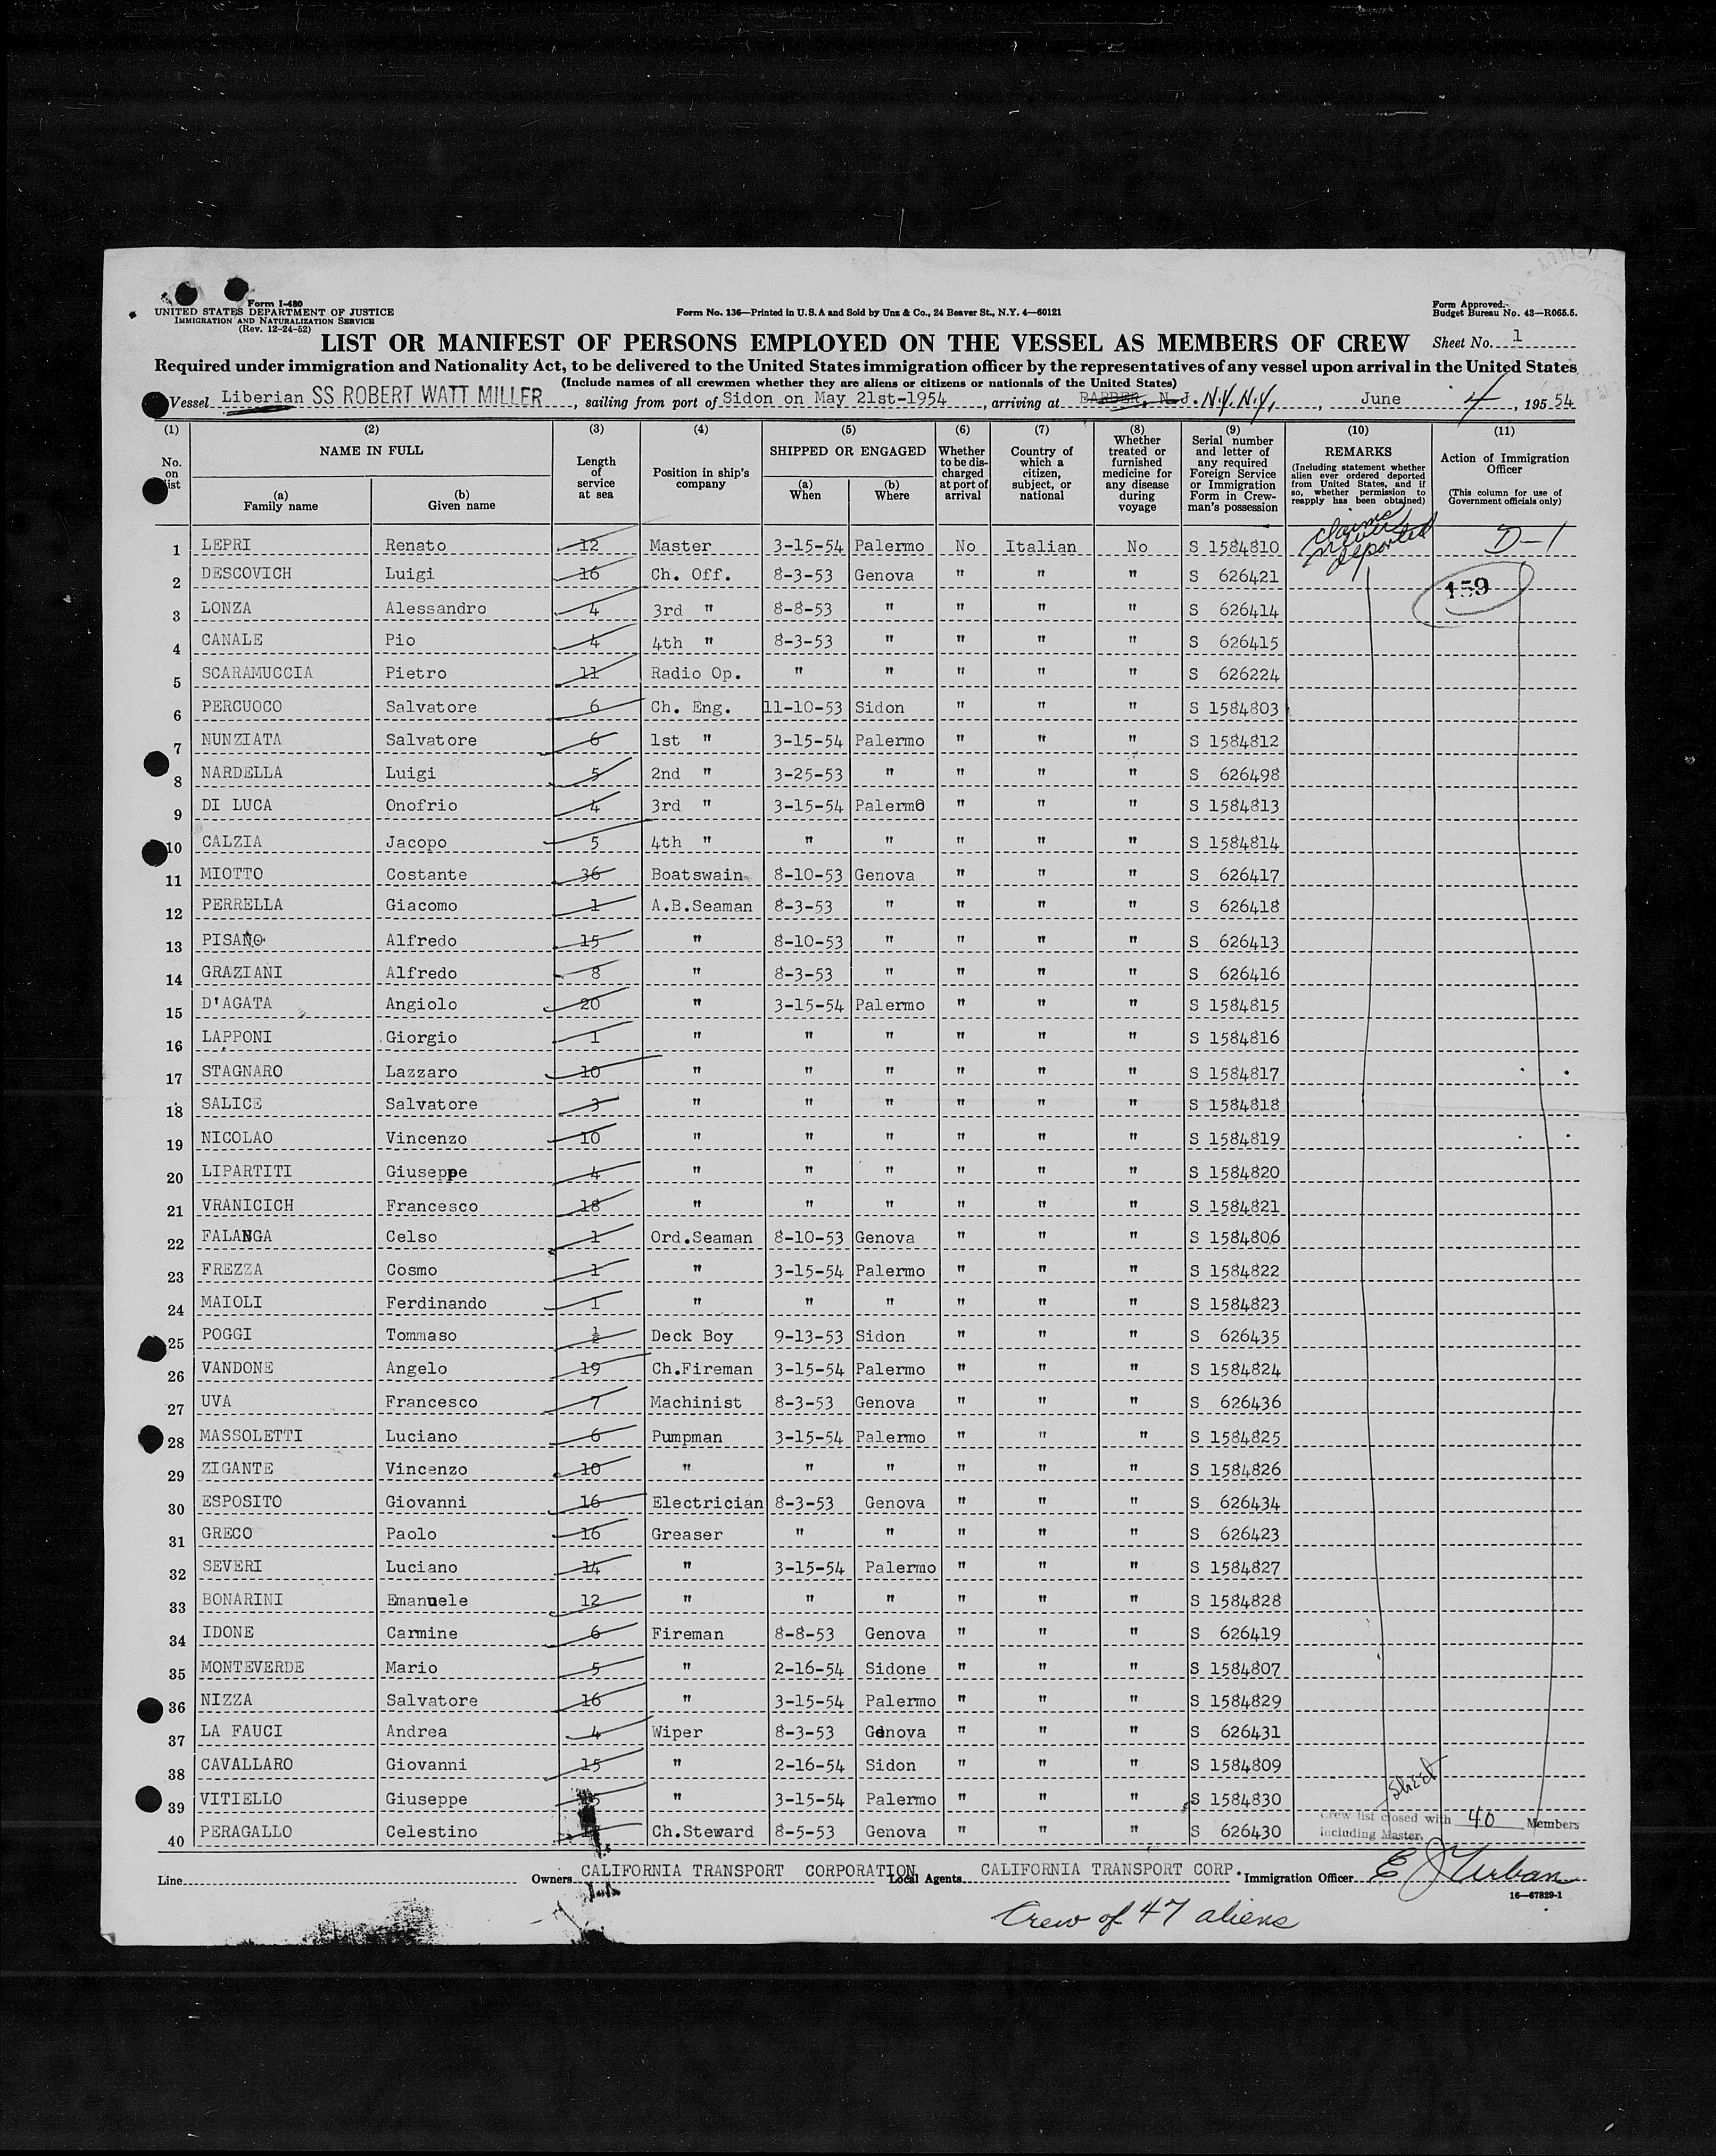 Form I-480
UNITED STATES DEPARTMENT OF JUSTICE
IMMIGRATION AND NATURALIZATION SERVICE
(Rev. 12-24-52)
Form No. 136—Printed in U.S.A and Sold by Unz & Co., 24 Beaver St., N.Y. 4—60121
Form Approved.
Budget Bureau No. 43—R065.5.
LIST OR MANIFEST OF PERSONS EMPLOYED ON THE VESSEL AS MEMBERS OF CREW Sheet No. 1
Required under immigration and Nationality Act, to be delivered to the United States immigration officer by the representatives of any vessel upon arrival in the United States
(Include names of all crewmen whether they are aliens or citizens or nationals of the United States)
Vessel Liberian SS ROBERT WATT MILLER, sailing from port of Sidon on May 21st-1954, arriving at BARBER, N.J. N.Y. N.Y., June 4, 1954
(1) (2) (3) (4) (5) (6) (7) (8) (9) (10) (11)
No. on list
NAME IN FULL
(a) Family name
(b) Given name
Length of service at sea
Position in ship's company
SHIPPED OR ENGAGED
(a) When
(b) Where
Whether to be discharged at port of arrival
Country of which a citizen, subject, or national
Whether treated or furnished medicine for any disease during voyage
Serial number and letter of any required Foreign Service or Immigration Form in Crewman's possession
REMARKS
(Including statement whether alien ever ordered deported from United States, and if so, whether permission to reapply has been obtained)
Action of Immigration Officer
(This column for use of Government officials only)
claims never deported
1 LEPRI Renato 12 Master 3-15-54 Palermo No Italian No S 1584810 D-1
2 DESCOVICH Luigi 16 Ch. Off. 8-3-53 Genova " " " S 626421 159
3 LONZA Alessandro 4 3rd " 8-8-53 " " " " S 626414
4 CANALE Pio 4 4th " 8-3-53 " " " " S 626415
5 SCARAMUCCIA Pietro 11 Radio Op. " " " " " S 626224
6 PERCUOCO Salvatore 6 Ch. Eng. 11-10-53 Sidon " " " S 1584803
7 NUNZIATA Salvatore 6 1st " 3-15-54 Palermo " " " S 1584812
8 NARDELLA Luigi 5 2nd " 3-25-53 " " " " S 626498
9 DI LUCA Onofrio 4 3rd " 3-15-54 Palermo " " " S 1584813
10 CALZIA Jacopo 5 4th " " " " " " S 1584814
11 MIOTTO Costante 36 Boatswain 8-10-53 Genova " " " S 626417
12 PERRELLA Giacomo 1 A.B.Seaman 8-3-53 " " " " S 626418
13 PISANO Alfredo 15 " 8-10-53 " " " " S 626413
14 GRAZIANI Alfredo 8 " 8-3-53 " " " " S 626416
15 D'AGATA Angiolo 20 " 3-15-54 Palermo " " " S 1584815
16 LAPPONI Giorgio 1 " " " " " " S 1584816
17 STAGNARO Lazzaro 10 " " " " " " S 1584817
18 SALICE Salvatore 3 " " " " " " S 1584818
19 NICOLAO Vincenzo 10 " " " " " " S 1584819
20 LIPARTITI Giuseppe 4 " " " " " " S 1584820
21 VRANICICH Francesco 18 " " " " " " S 1584821
22 FALANGA Celso 1 Ord.Seaman 8-10-53 Genova " " " S 1584806
23 FREZZA Cosmo 1 " 3-15-54 Palermo " " " S 1584822
24 MAIOLI Ferdinando 1 " " " " " " S 1584823
25 POGGI Tommaso ½ Deck Boy 9-13-53 Sidon " " " S 626435
26 VANDONE Angelo 19 Ch.Fireman 3-15-54 Palermo " " " S 1584824
27 UVA Francesco 7 Machinist 8-3-53 Genova " " " S 626436
28 MASSOLETTI Luciano 6 Pumpman 3-15-54 Palermo " " " S 1584825
29 ZIGANTE Vincenzo 10 " " " " " " S 1584826
30 ESPOSITO Giovanni 16 Electrician 8-3-53 Genova " " " S 626434
31 GRECO Paolo 16 Greaser " " " " " S 626423
32 SEVERI Luciano 14 " 3-15-54 Palermo " " " S 1584827
33 BONARINI Emanuele 12 " " " " " " S 1584828
34 IDONE Carmine 6 Fireman 8-8-53 Genova " " " S 626419
35 MONTEVERDE Mario 5 " 2-16-54 Sidone " " " S 1584807
36 NIZZA Salvatore 16 " 3-15-54 Palermo " " " S 1584829
37 LA FAUCI Andrea 4 Wiper 8-3-53 Genova " " " S 626431
38 CAVALLARO Giovanni 15 " 2-16-54 Sidon " " " S 1584809
39 VITIELLO Giuseppe " 3-15-54 Palermo " " " S 1584830
40 PERAGALLO Celestino Ch.Steward 8-5-53 Genova " " " S 626430
Sheet
Crew list closed with 40 Members
including Master.
Line Owners CALIFORNIA TRANSPORT CORPORATION Local Agents CALIFORNIA TRANSPORT CORP. Immigration Officer E J Urban
16—67829-1
Crew of 47 aliens